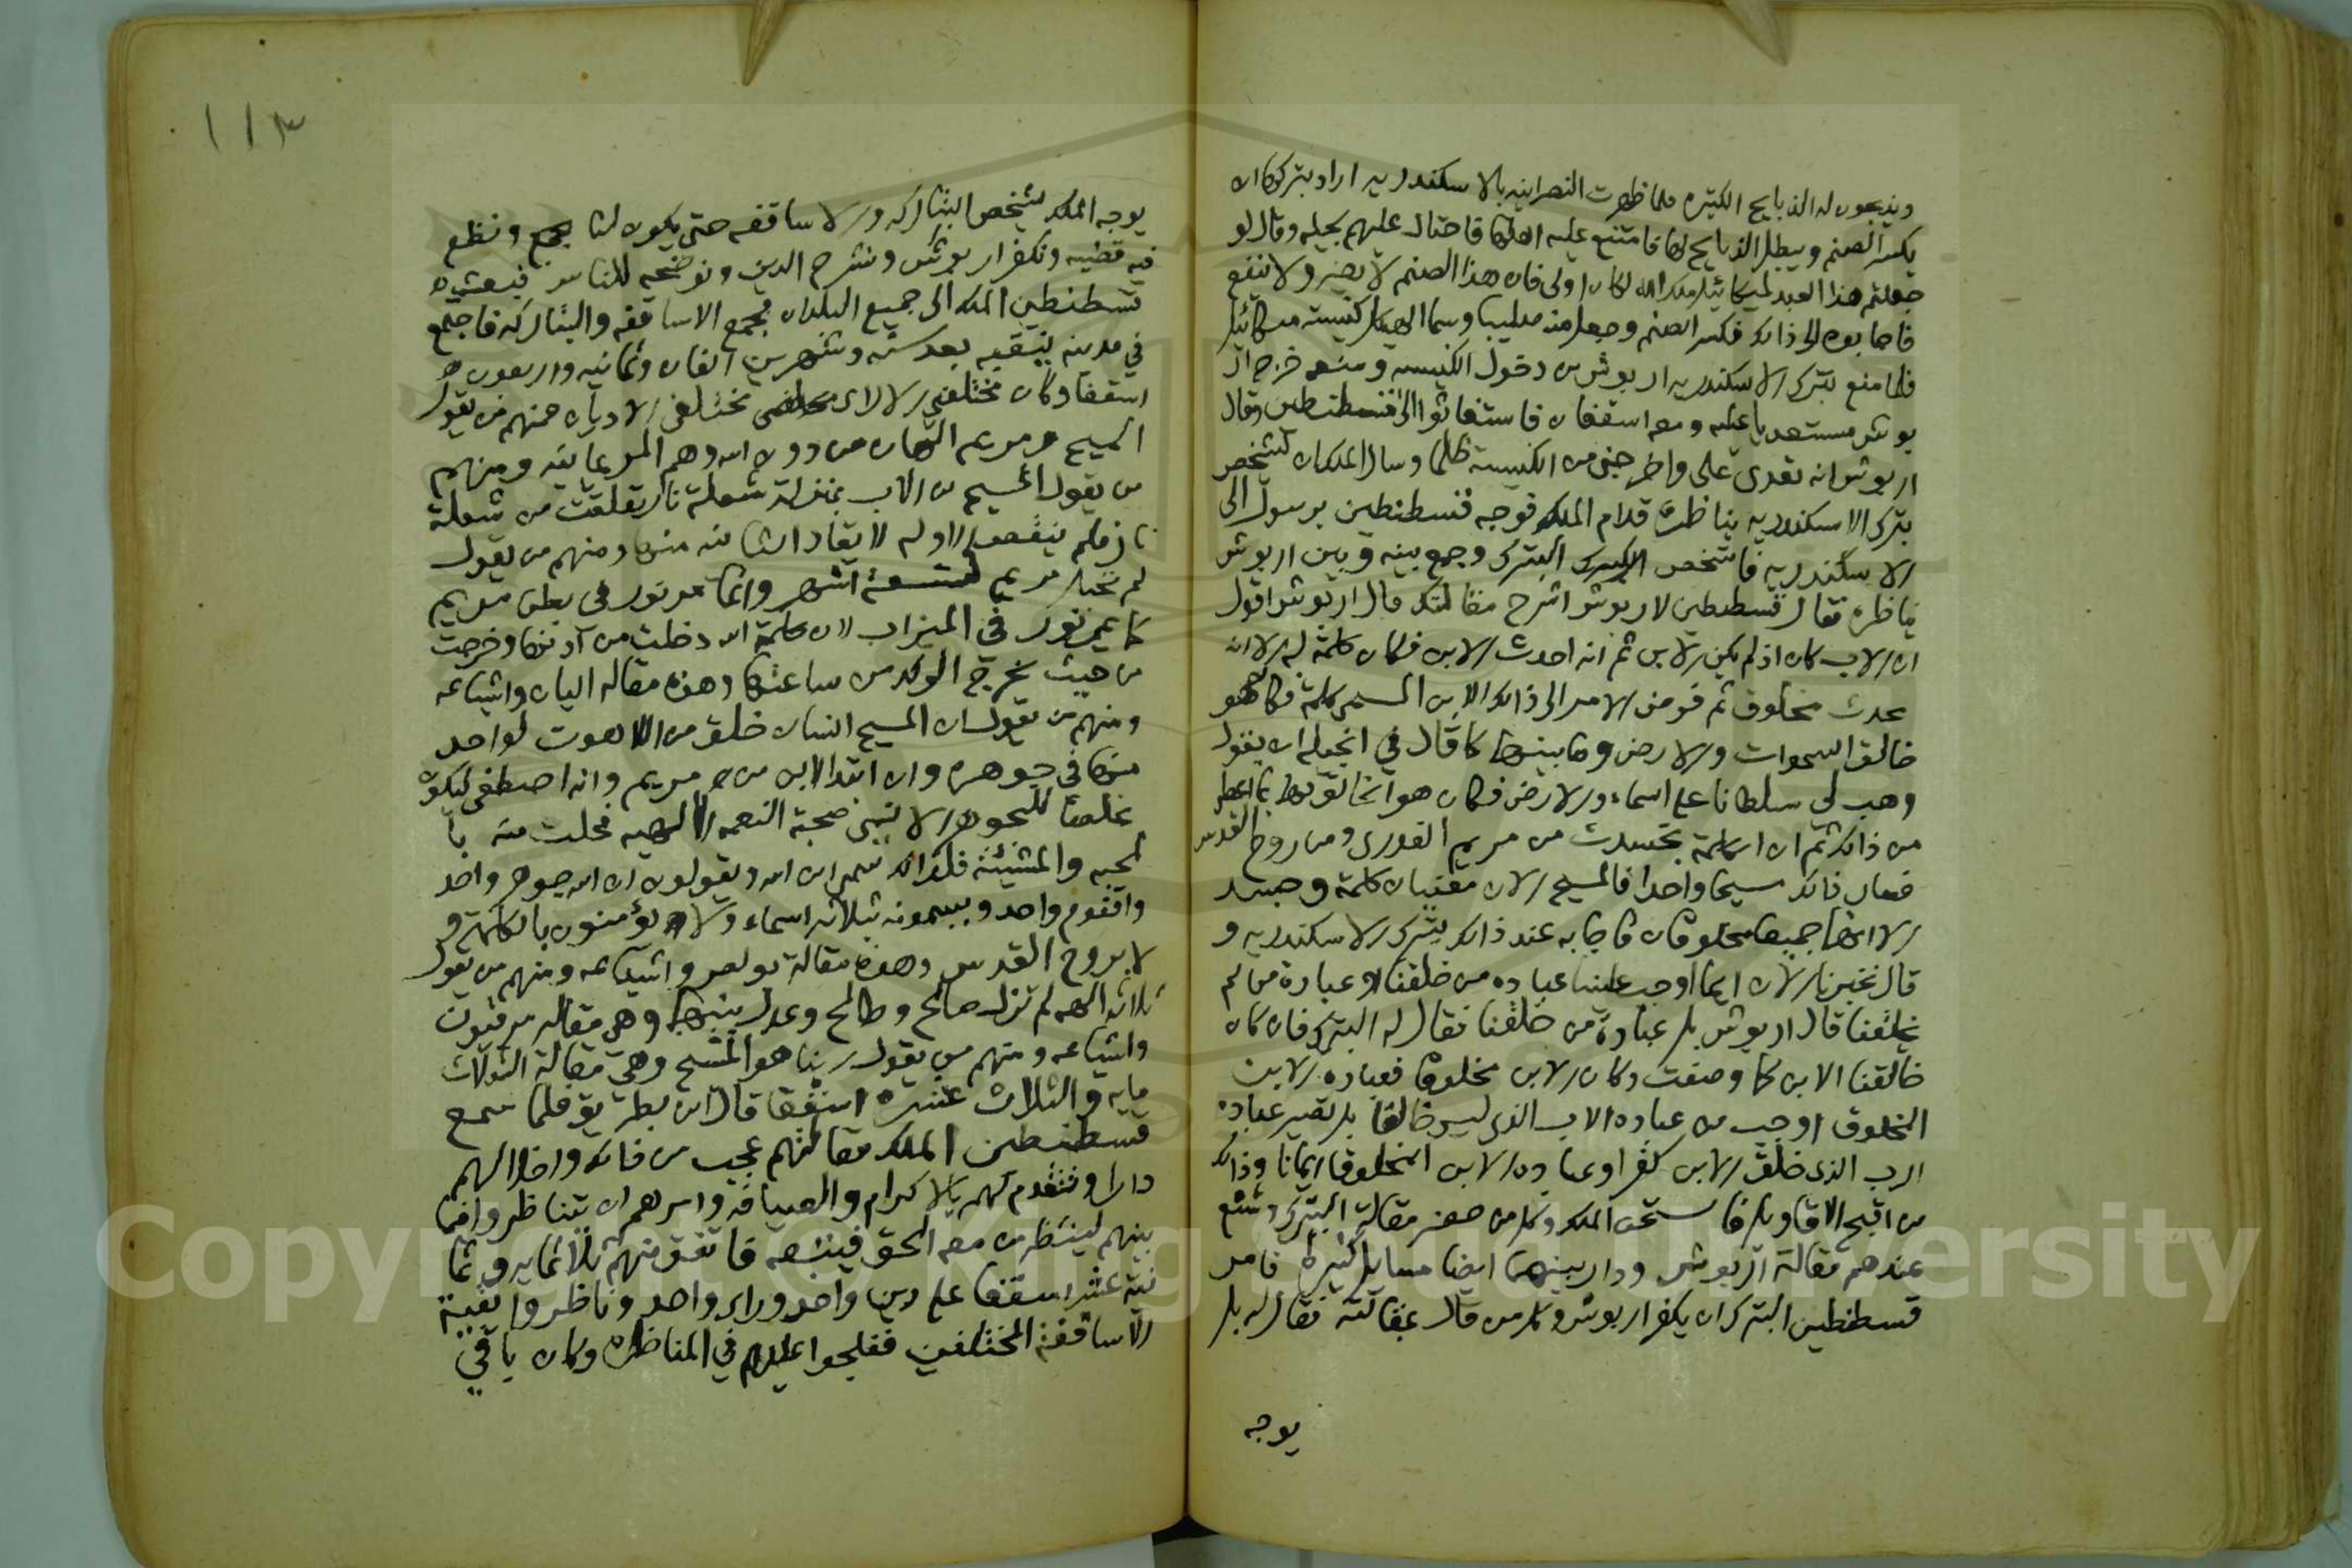 ويذبحون له الذبايح الكثيره فلما ظهرت النصرانيه بالاسكندريه اراد بتركها ان
يكسر الصنم ويبطل الذبايح لها فامتنع عليه اهلها فاحتال عليهم بحيله وقال لو
جعلتم هذا العيد لميكائيل ملك الله لكان اولى فان هذا الصنم لا يضر ولا ينفع
فاجابوه الى ذالك فكسر الصنم وجعل منه صليبا وسما الهيكل كنيسة ميكائيل
فلما منع بترك الاسكندريه اريوش من دخول الكنيسه ومنعه خرج ار
يوش مستعديا عليه ومعه اسقفان فاستغاثوا الى قسطنطين وقال
اريوش انه تعدى على واخرجني من الكنيسة ظلما وسال الملك ان يشخص
بترك الاسكندريه يناظره قدام الملك فوجه قسطنطين برسول الى
الاسكندريه فاشخص البترك وجمع بينه وبين اريوش
يناظره فقال قسطنطين لاريوش اشرح مقالتك قال اريوش اقول
ان الاب كان اذ لم يكن الابن ثم انه احدث الابن فكان كلمة له الا انه
محدث مخلوق ثم فوض الامر الى ذالك الابن المسمى كلمة فكان هو
خالق السموات والارض وما بينهما كما قال في انجيله ان يقول
وهب لي سلطانا على السماء والارض فكان هو الخالق لهما بما اعطى
من ذالك ثم ان الكلمة تجسدت من مريم العذرى ومن روح القدس
فصار ذالك مسيحا واحدا فالمسيح الان معنيان كلمة وجسد
الا انهما جميعا مخلوقان فاجابه عند ذالك بترك الاسكندريه و
قال تخبرنا الان ايما اوجب علينا عباده من خلقنا او عبادة من لم
يخلقنا قال اريوش بل عبادة من خلقنا فقال له البترك فان كان
خالقنا الابن كما وصفت وكان الابن مخلوقا فعباده الابن
المخلوق اوجب من عباده الاب الذى ليس خالقا بل تصير عباده
الاب الذى خلق الابن كفرا وعباده الابن المخلوق ايمانا وذالك
من اقبح الاقاويل فاستحسن الملك وكل من حضر مقالة البترك وشنع
عندهم مقالة اريوش ودار بينهما ايضا مسايل كثيرة فامر
قسطنطين البترك ان يكفر اريوش وكل من قال بمقالته فقال له بل
يوجه
١١٣
يوجه الملك يشخص البتاركه والاساقفه حتى يكون لنا مجمع ونضع
فيه قضيه ونكفر اريوش ونشرح الدين ونوضحه للناس فبعث
قسطنطين الملك الى جميع البلدان فجمع الاساقفه والبتاركه فاجتمع
في مدينه نيقيه بعد سنه وشهرين الفان وثمانيه واربعون
اسقفا وكان مختلفي الاراى مختلفي الاديان فمنهم من يقول
المسيح ومريم الهان من دون الله وهم المريمانيه ومنهم
من يقول المسيح من الاب بمنزلة شعلة نار تعلقت من شعلة
نار فلم ينقص الاوله لايقاد الثانيه منها ومنهم من يقول
لم تحبل مريم لتسعة اشهر وانما مر نور في بطن مريم
كما يمر نور في الميزاب لان كلمة الله دخلت من اذنها وخرجت
من حيث يخرج الولد من ساعتها وهذه مقاله اليان واشياعه
ومنهم من يقول ان المسيح انسان خلق من اللاهوت كواحد
منا في جوهره وان ابتدا الابن من مريم وانه اصطفي ليكون
مخلصا للجوهر الانسي صحبة النعمه الالهيه فحلت منه با
لمحبه والمشيئة فلذالك سمى ابن الله ويقولون ان الله جوهر واحد
واقنوم واحد ويسمونه بثلاثه اسماء ولا يؤمنون بالكلمة و
لا بروح القدس وهذه مقالة بولص واشياعه ومنهم من يقول
ثلاثه الهه لم تزل صالح وطالح وعدل بينهما وهي مقاله مرقيون
واشياعه ومنهم من يقول ربنا هو المسيح وهي مقالة الثلاث
مايه والثلاث عشره اسقفا قال ابن بطريق فلما سمع
قسطنطين الملك مقالتهم عجب من ذالك واخلا لهم
دارا وتقدم لهم بالاكرام والضيافه وامرهم ان يتناظروا فيما
بينهم لينظر من معه الحق فيتبعه فاتفق منهم ثلاثمايه وثما
نية عشر اسقفا على دين واحد وراى واحد وناظروا بقية
الاساقفة المختلفين ففلجوا عليهم في المناظره وكان باقي
Copyright © King Saud University